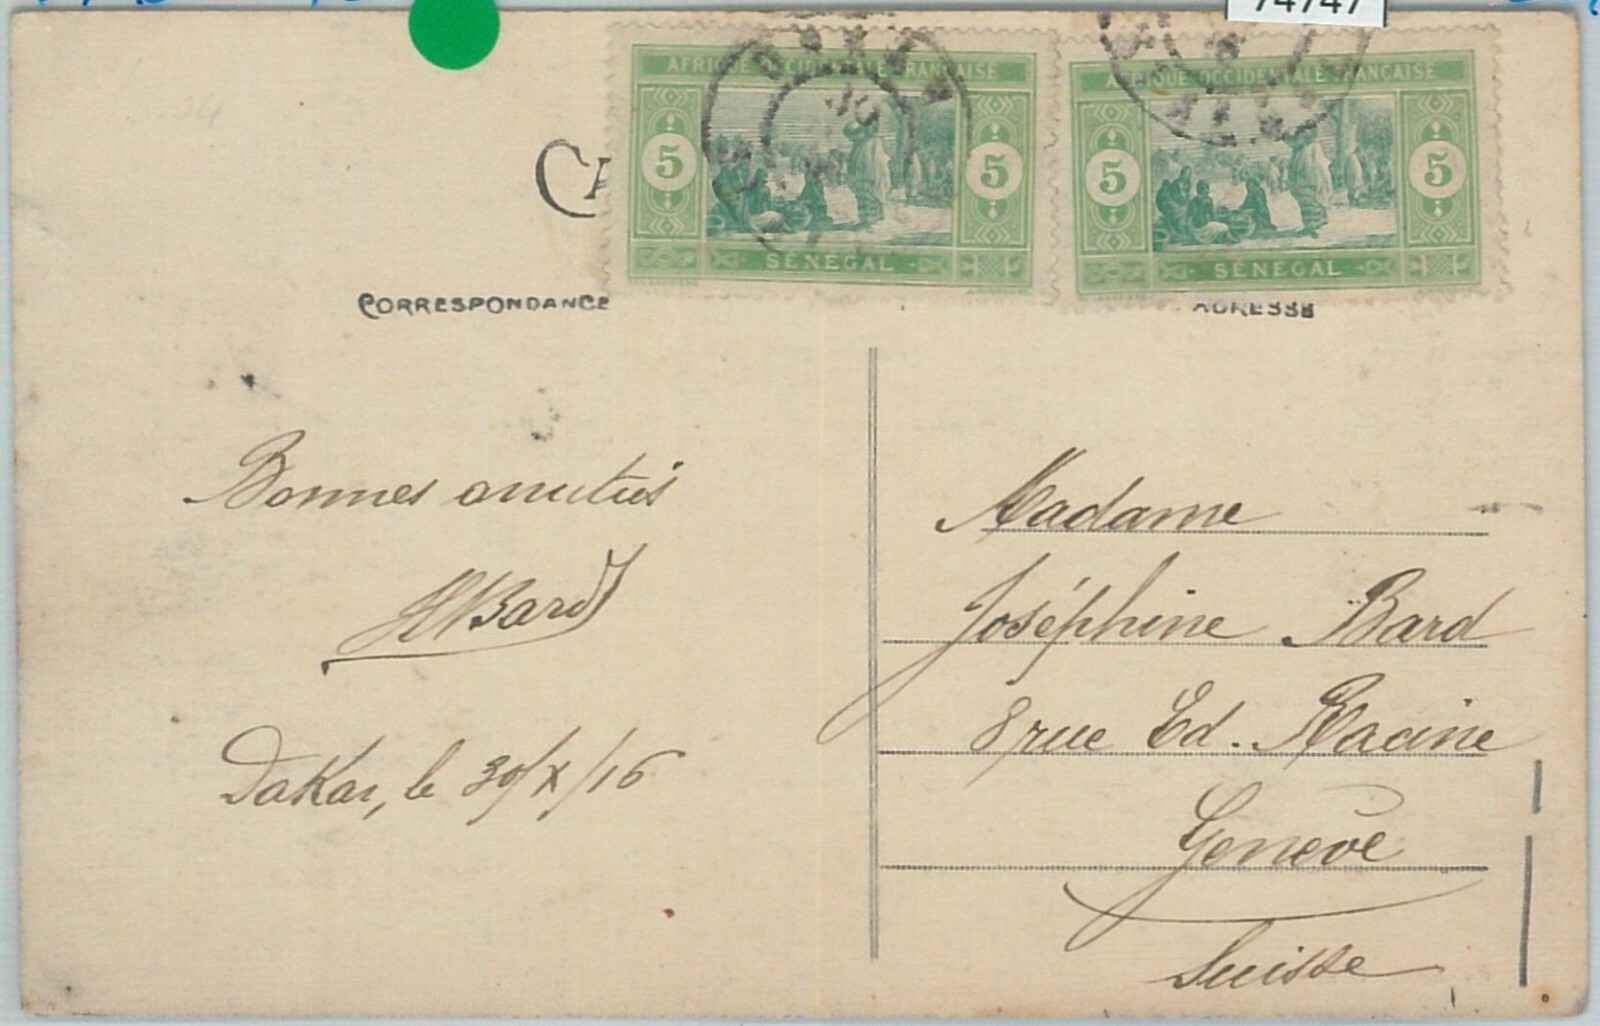 74747
AFRIQUE OCCIDENTALE FRANÇAISE
5 5
SÉNÉGAL
AFRIQUE OCCIDENTALE FRANÇAISE
5 5
SÉNÉGAL
CORRESPONDANCE
ADRESSE
Bonnes amitiés
Bard
Dakar, le 30/X/16
Madame
Joséphine Bard
8 rue Ed. Racine
Genève
Suisse